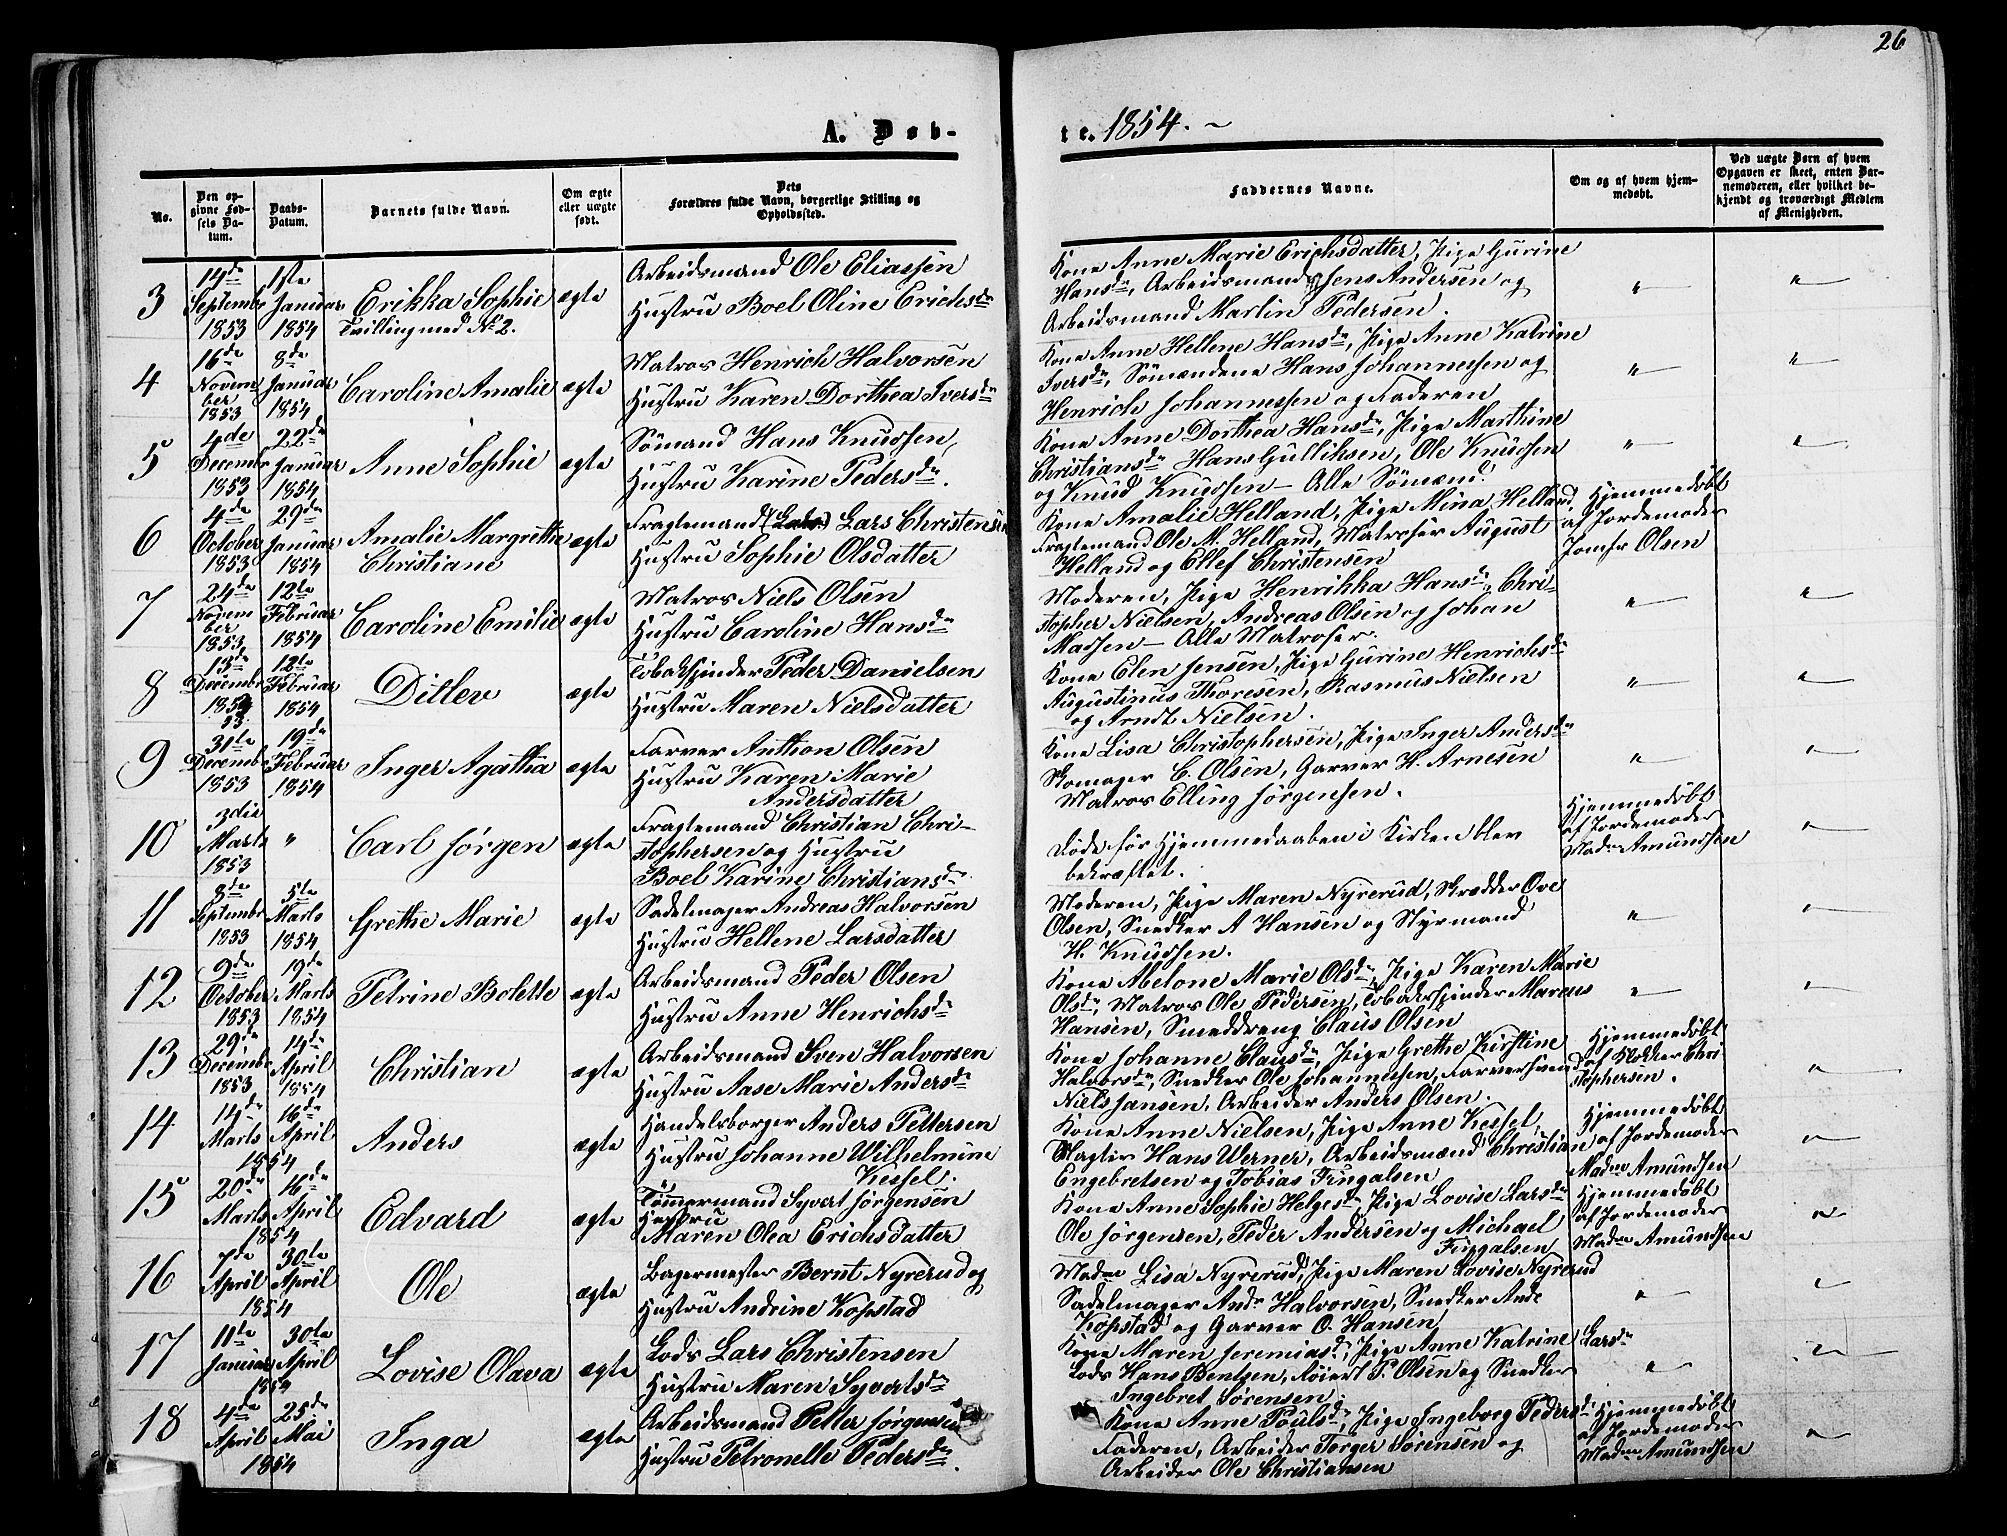 26
A. Døb-
te. 1854.
No.
Den op-
givne Fød-
sels Da-
tum.
Daabs-
Datum.
Barnets fulde Navn.
Om ægte
eller uægte
født.
Dets
Forældres fulde Navn, borgerlige Stilling og
Opholdssted.
Faddernes Navne.
Om og af hvem hjem-
medøbt.
Ved uægte Børn af hvem
Opgaven er skeet, enten Bar-
nemoderen, eller hvilket be-
kjendt og troværdigt Medlem
af Menigheden.
3
14de
Septembr
1853
1ste
Januar
1854
Erikka Sophie
Tvilling med No 2.
ægte
Arbeidsmand Ole Eliassen
Hustru Boel Oline Erichsdr
Kone Anne Marie Erichsdatter, Pige Gurine
Hansdr, Arbeidsmand Jens Andersen og
Arbeidsmand Martin Pedersen.
4
16de
Novem
ber
1853
8de
Januar
1854
Caroline Amalie
ægte
Matros Henrich Halvorsen
Hustru Karen Dorthea Iversdr
Kone Anne Hellene Hansdr, Pige Anne Katrine
Iversdr, Sømændene Hans Johannessen og
Henrich Johannessen og Faderen
5
4de
Decembr
1853
22de
Januar
1854
Anne Sophie
ægte
Sømand Hans Knudsen,
Hustru Karine Pedersdr.
Kone Anne Dorthea Hansdr, Pige Marthine
Christiansdr Hans Gulliksen, Ole Knudsen
og Knud Knudsen – Alle Sømænd.
6
4de
October
1853
29de
Januar
1854
Amalie Margrethe
Christiane
ægte
Fragtemand Lars Christensen
Hustru Sophie Olsdatter
Kone Amalie Helland, Pige Mina Helland,
Fragtemand Ole M. Helland, Matroser August
Helland og Ellef Christensen
Hjemmedøbt
af Jordemoder
Jomfr Olsen
7
24de
Novem
ber
1853
12te
Februar
1854
Caroline Emilie
ægte
Matros Niels Olsen
Hustru Caroline Hansdr
Moderen, Pige Henrikka Hansdr, Chri-
stopher Nielsen, Andreas Olsen og Johan
Madsen – Alle Matroser.
8
13de
Decembr
1853
12te
Februar
1854
Ditlev
ægte
Tobakspinder Peder Danielsen
Hustru Maren Nielsdatter
Kone Elen Jensen, Pige Gurine Henrichsdr
Augustinus Thoresen, Rasmus Nielsen
og Arndt Nielsen.
9
31te
Decembr
1853
19de
Februar
1854
Inger Agatha
ægte
Farver Anthon Olsen
Hustru Karen Marie
Andersdatter
Kone Lisa Christophersen, Pige Inger Andersdr
Skomager C. Olsen, Garver H. Arnesen
Matros Elling Jørgensen.
10
3die
Marts
1853
"
Carl Jørgen
ægte
Fragtemand Christian Chri-
stophersen og Hustru
Boel Karine Christiansdr
Døde før Hjemmedaaben i Kirken blev
bekræftet.
Hjemmedøbt
af Jordemoder
Madme Amundsen
11
8de
Septembr
1853
5te
Marts
1854
Grethe Marie
ægte
Sadelmager Andreas Halvorsen
Hustru Hellene Larsdatter
Moderen, Pige Maren Nyrerud, Skrædder Ove
Olsen, Snedker A Hansen og Styrmand
H. Knudsen.
12
9de
October
1853
19de
Marts
1854
Petrine Bolette
ægte
Arbeidsmand Peder Olsen
Hustru Anne Henrichsdr
Kone Abelone Marie Olsdr, Pige Karen Marie
Olsdr, Matros Ole Pedersen, Tobakspinder Marcus
Hansen, Smeddreng Claus Olsen
13
29de
Decembr
1853
14de
April
1854
Christian
ægte
Arbeidsmand Sven Halvorsen
Hustru Aase Marie Andersdr
Kone Johanne Clausdr, Pige Grethe Kirstine
Halvorsdr, Snedker Ole Johannessen, Farversvend
Niels Jansen, Arbeider Anders Olsen.
Hjemmedøbt
af Klokker Chri
stophersen.
14
14de
Marts
1854
16de
April
Anders
ægte
Handelsborger Anders Pettersen
Hustru Johanne Wilhelmine
Kessel.
Kone Anne Nielsen, Pige Anne Kessel,
Hans Werner, Arbeidsmænd Christian
Engebretsen og Tobias Fingalsen
Hjemmedøbt
af Jordemoder
Madme Amundsen
15
20de
Marts
1854
16de
April
Edvard
ægte
Tømmermand Syvert Jørgensen
Hustru
Maren Olea Erichsdatter
Kone Anne Sophie Helgesdr, Pige Lovise Larsdr
Ole Jørgensen, Peder Andersen og Michael
Fingalsen
Hjemmedøbt
af Jordemoder
Madme Amundsen
16
7de
April
1854
30te
April
Ole
ægte
Bagermester Bernt Nyrerud og
Hustru Andrine Kopstad
Madme Lisa Nyrerud, Pige Maren Lovise Nyrerud
Sadelmager Andr Halvorsen, Snedker
Kopstad og Garver O. Hansen
17
11te
Januar
1854
30te
April
Lovise Olava
ægte
Lods Lars Christensen
Hustru Maren Syvertsdr
Kone Maren Jeremiasdr, Pige Anne Katrine Larsdr
Lods Hans Bentsen, Røiert P. Olsen og Snedker
Ingebret Sørensen.
18
4de
April
1854
25de
Mai
Inga
ægte
Arbeidsmand Petter Jørgensen
Hustru Petronelle Pedersdr.
Kone Anne Poulsdr, Pige Ingeborg Pedersdr
Faderen, Arbeider Tørger Sørensen og
Arbeider Ole Christiansen
Hjemmedøbt
af Jordemoder
Madme Amundsen